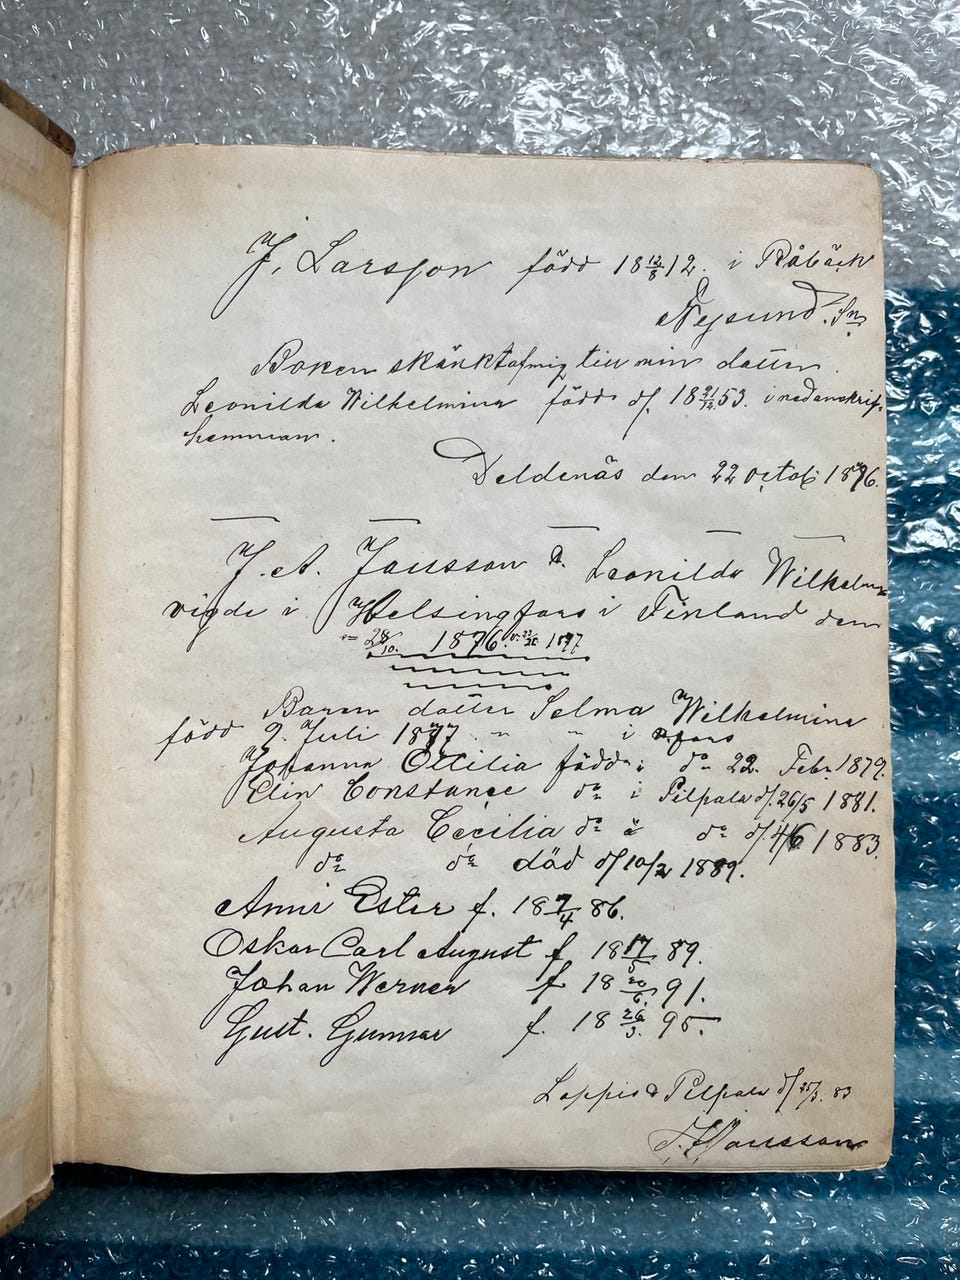 J. Larsson född 18 12/8 12. i Råbäck
Nysund. Sn
Boken skänkt af mig till min dotter
Leonilda Wilhelmina född d/. 18 21/12 53. i nedanskrif-
hemman.
Deldenäs den 22 octob 1876.
J. A. Jansson & Leonilda Wilhelm
vigde i Helsingfors i Finland den
28/10. 1876. 1877
Baren dotter Selma Wilhelmina
född 9. Juli 1877. " " i H.fors
Johanna Ottilia född i do 22. Feb. 1879.
Elin Constance do i Pilpala d/. 26/5 1881.
Augusta Cecilia do i do d/ 4/6 1883.
do do död d/ 10/2 1889.
Anni Ester f. 18 7/4 86.
Oskar Carl August f 18 17/5 89.
Johan Werner f 18 20/6. 91.
Gust. Gunnar f. 18 26/3. 95.
Loppis & Pilpala d/ 25/3. 83
Jansson